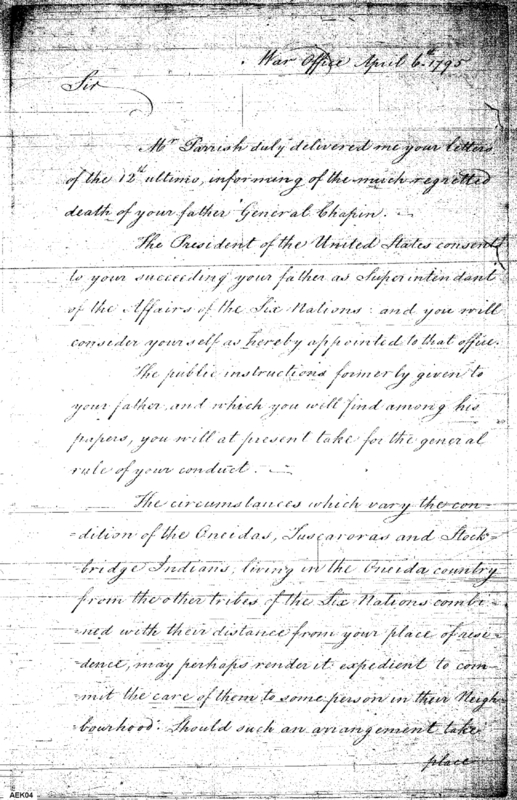 War Office April 6th 1795
Sir
Mr Parrish duly delivered me your letters
of the 12th ultimo, informing of the much regretted
death of your father General Chapin.
The President of the United States consents
to your succeeding your father as Superintendant
of the Affairs of the Six Nations: and you will
consider yourself as hereby appointed to that office.
The public instructions formerly given to
your father and which you will find among his
papers, you will at present take for the general
rule of your conduct.
The circumstances which vary the con-
-dition of the Oneidas, Tuscaroras and Stock-
-bridge Indians, living in the Oneida country
from the other tribes of the Six Nations combi-
-ned with their distance from your place of resi-
-dence, may perhaps render it expedient to com-
-mit the care of them to some person in their Neigh-
-bourhood. Should such an arrangement take
place
AEK04